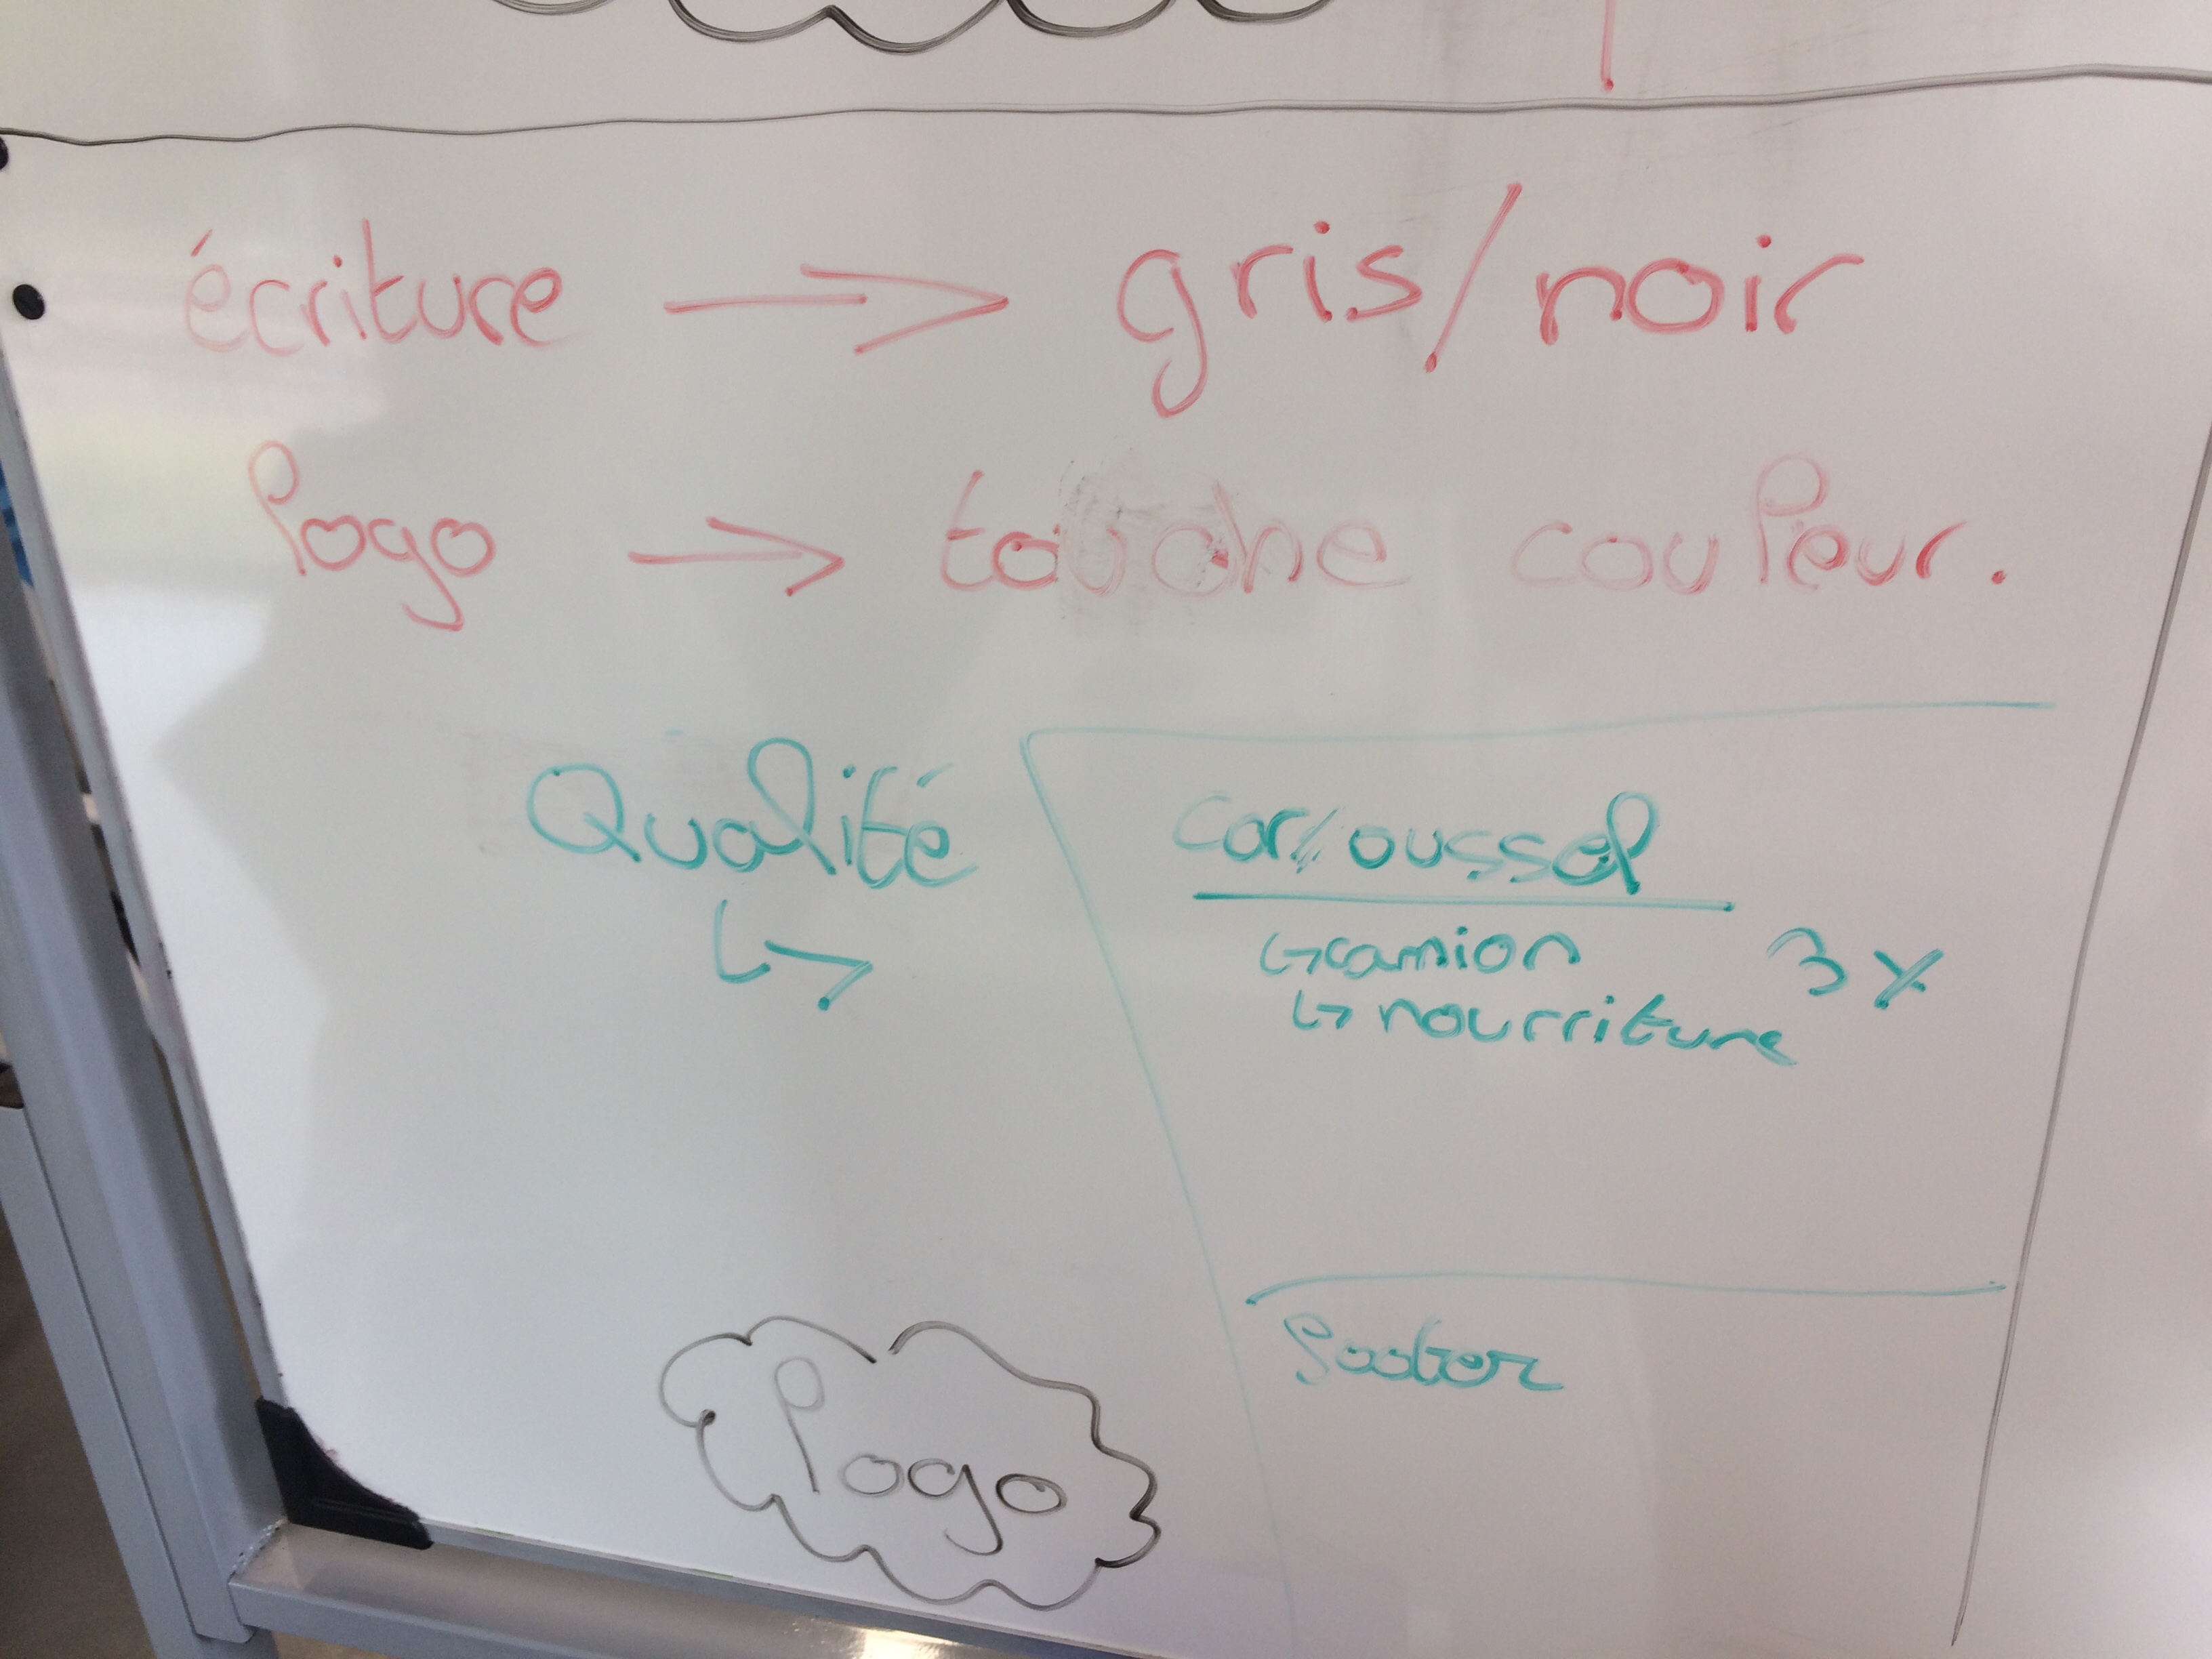 écriture → gris/noir
logo → touche couleur.
Qualité
↳
carroussel
↳ camion 3x
↳ nourriture
footer
logo